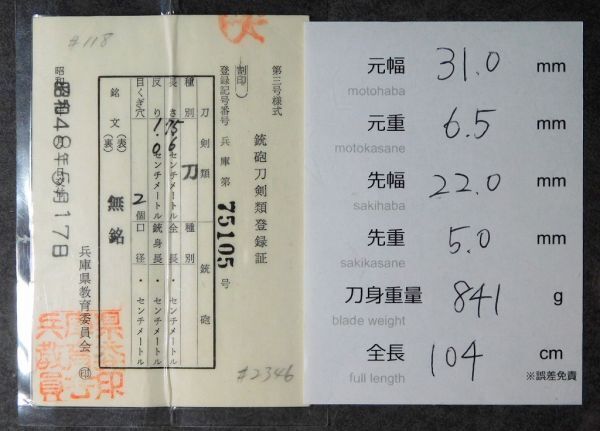 #118
第三号様式
銃砲刀剣類登録証
(割印)
登録記号番号 兵庫 第 75105 号
刀剣類
銃砲
種別 刀
種別
長さ 75.6 センチメートル
全長 ・ センチメートル
反り 1.0 センチメートル
銃身長 ・ センチメートル
目くぎ穴 2個
口径 ・ センチメートル
銘文 (表) (裏) 無銘
昭和48年5月17日
兵庫県教育委員会 ㊞
#2346
元幅 31.0 mm
motohaba
元重 6.5 mm
motokasane
先幅 22.0 mm
sakihaba
先重 5.0 mm
sakikasane
刀身重量 841 g
blade weight
全長 104 cm
full length
※誤差免責